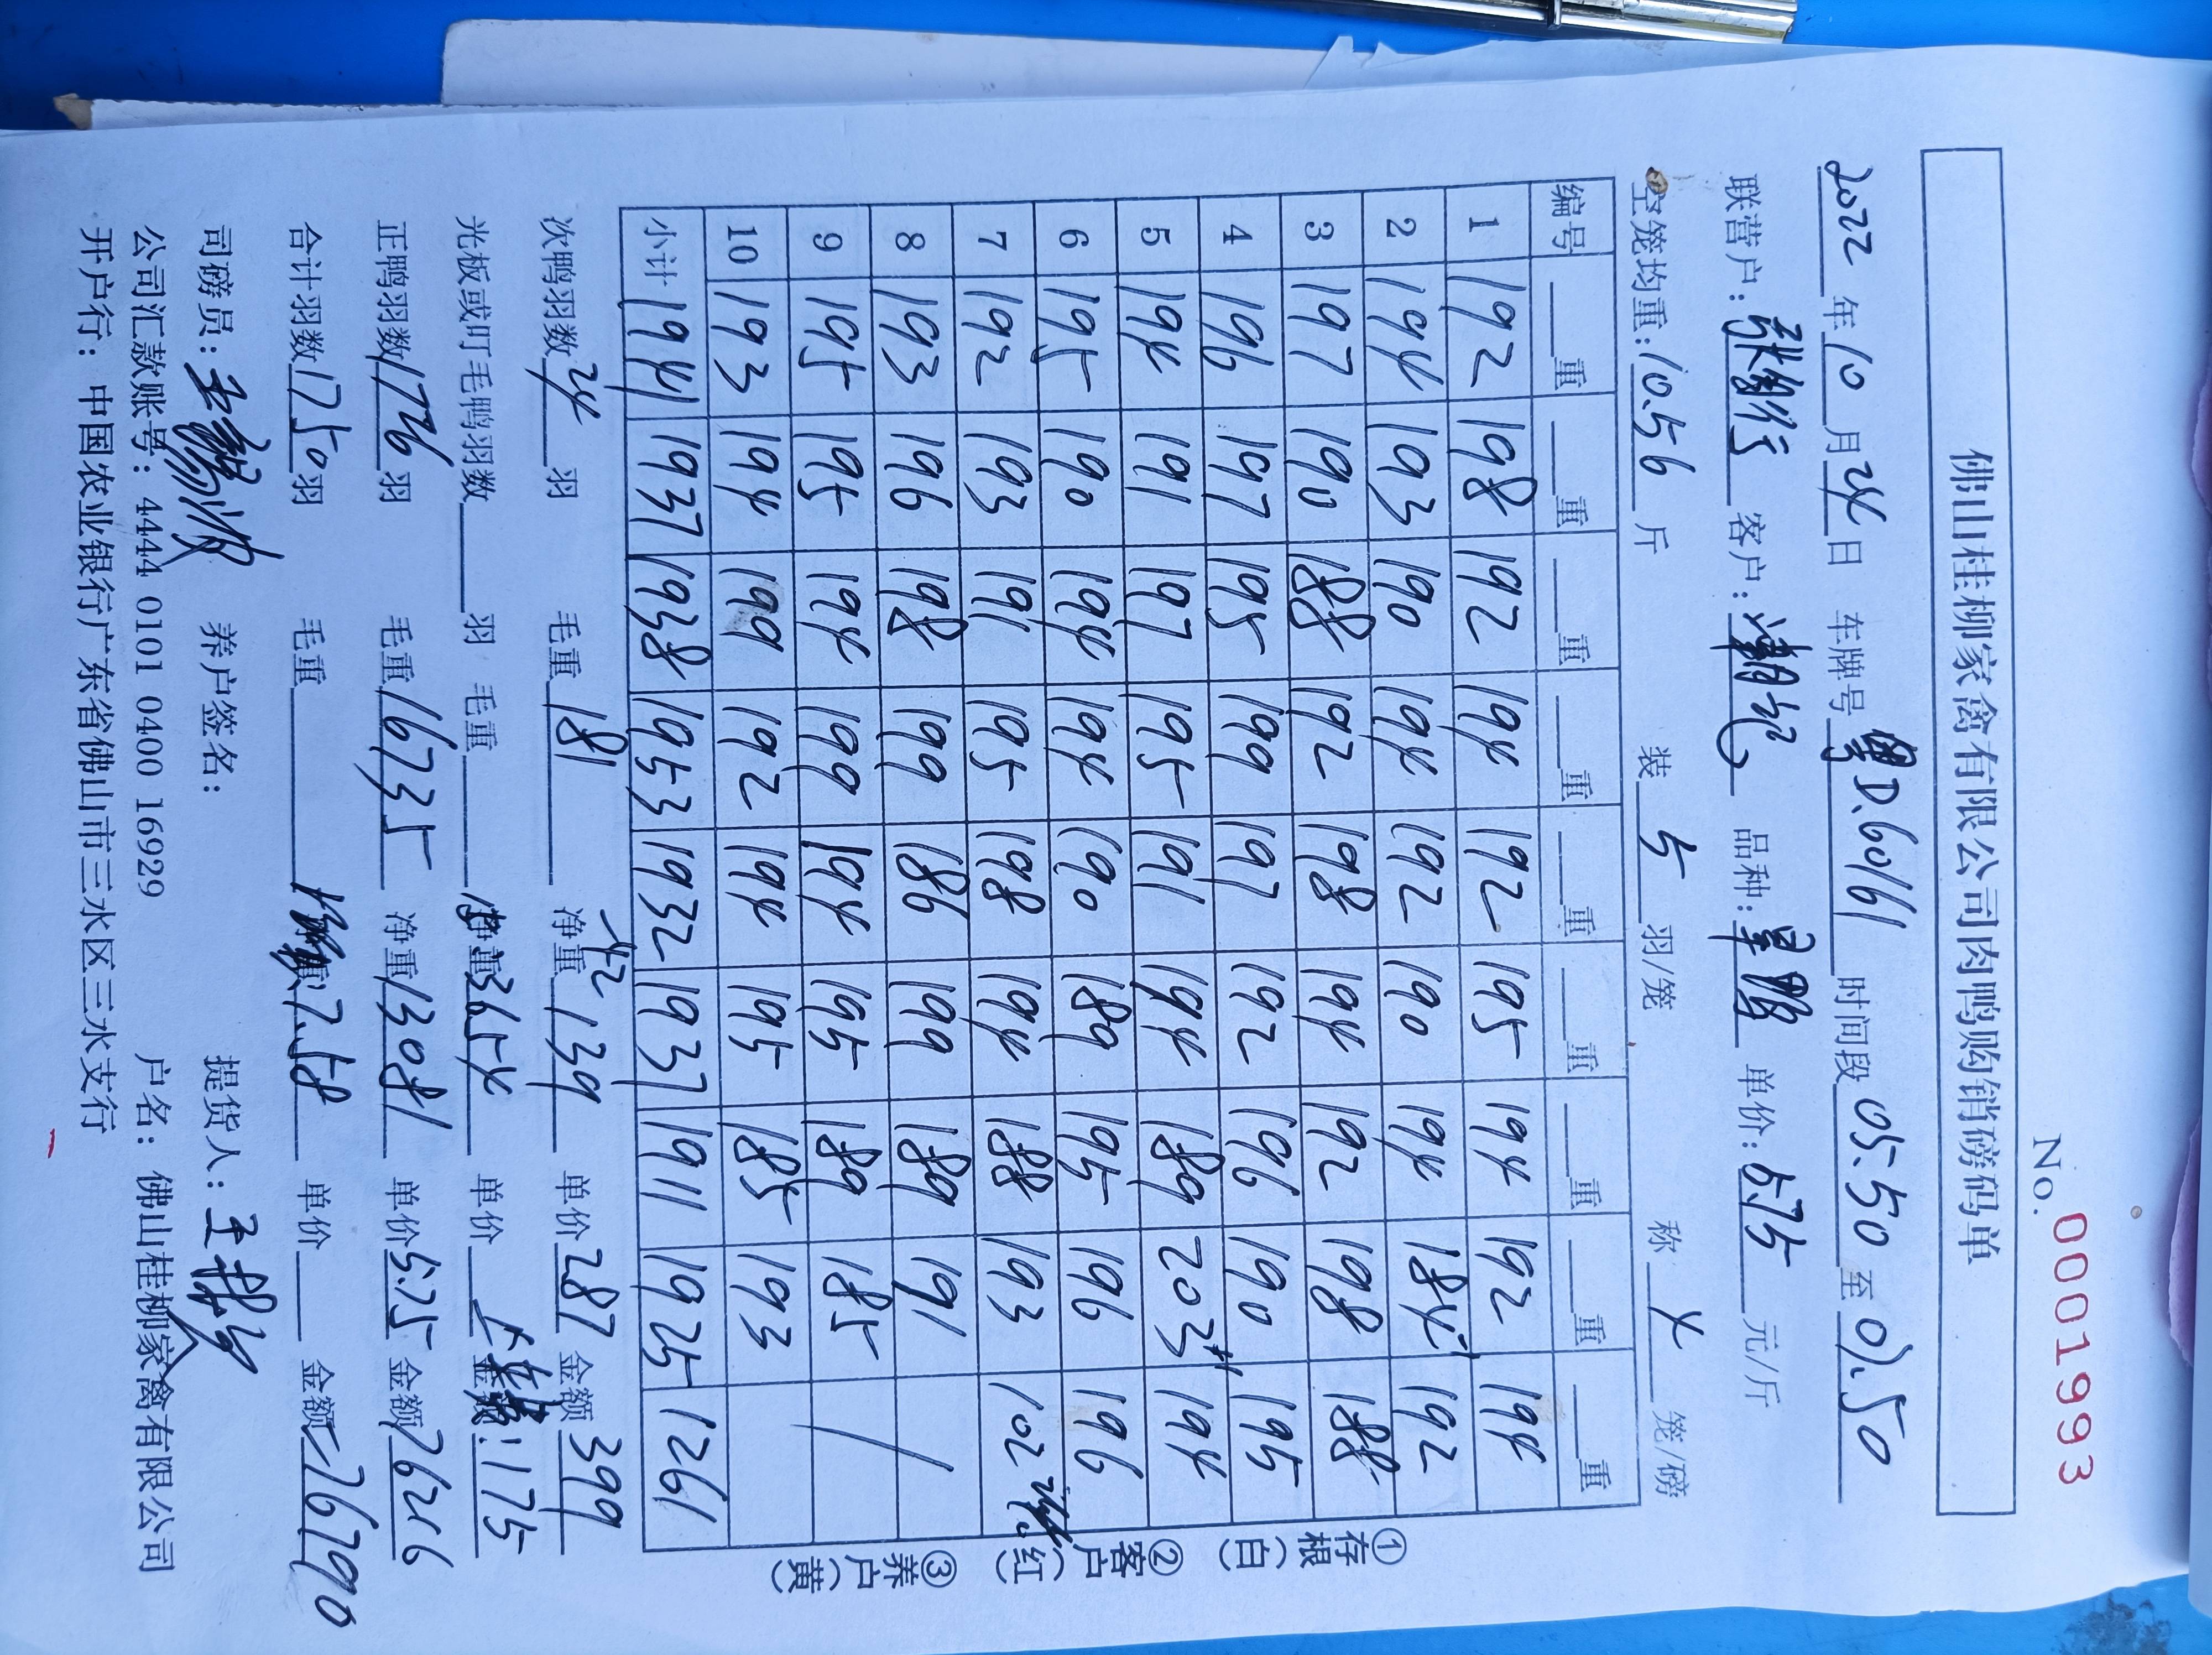 No. 0001993
佛山桂柳家禽有限公司肉鸭购销磅码单
2022年10月24日 车牌号粤D.60161 时间段05.50至07.50
联营户: 客户:潮记 品种: 单价:5.75元/斤
空笼均重:10.56斤 装5羽/笼 称4笼/磅
编号 重 重 重 重 重 重 重 重 重
1 192 198 192 194 192 195 194 192 194
2 194 193 190 194 192 190 194 184 192
3 197 190 188 192 198 194 192 198 188
4 196 197 195 199 197 192 196 190 195
5 194 191 197 195 191 194 189 203 194
6 195 190 194 194 190 189 195 196 196
7 192 193 191 195 198 194 188 193 102
8 193 196 198 199 186 199 189 191 /
9 195 195 194 199 194 195 189 185
10 193 194 199 192 194 195 185 193
小计 1941 1937 1938 1953 1932 1937 1911 1925 1261
①存根(白) ②客户(红) ③养户(黄)
次鸭羽数24羽 毛重181 -42 净重139 单价287 金额399
光板或叮毛鸭羽数 羽 毛重 净重3654 单价 金额:1175
正鸭羽数1726羽 毛重16735 净重13081 单价5.75 金额76216
合计羽数1750羽 毛重 7.58 单价 金额76790
司磅员: 养户签名: 提货人:
公司汇款账号: 4444 0101 0400 16929 户名: 佛山桂柳家禽有限公司
开户行: 中国农业银行广东省佛山市三水区三水支行